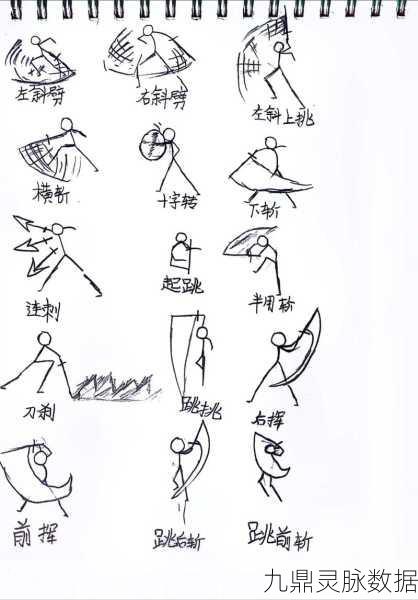 左斜劈
右斜劈
左斜上挑
横斩
十字转
下斩
连刺
起跳
半月斩
刀刹
跳挑
右挥
前挥
跳后斩
跳前斩
九鼎灵脉数据